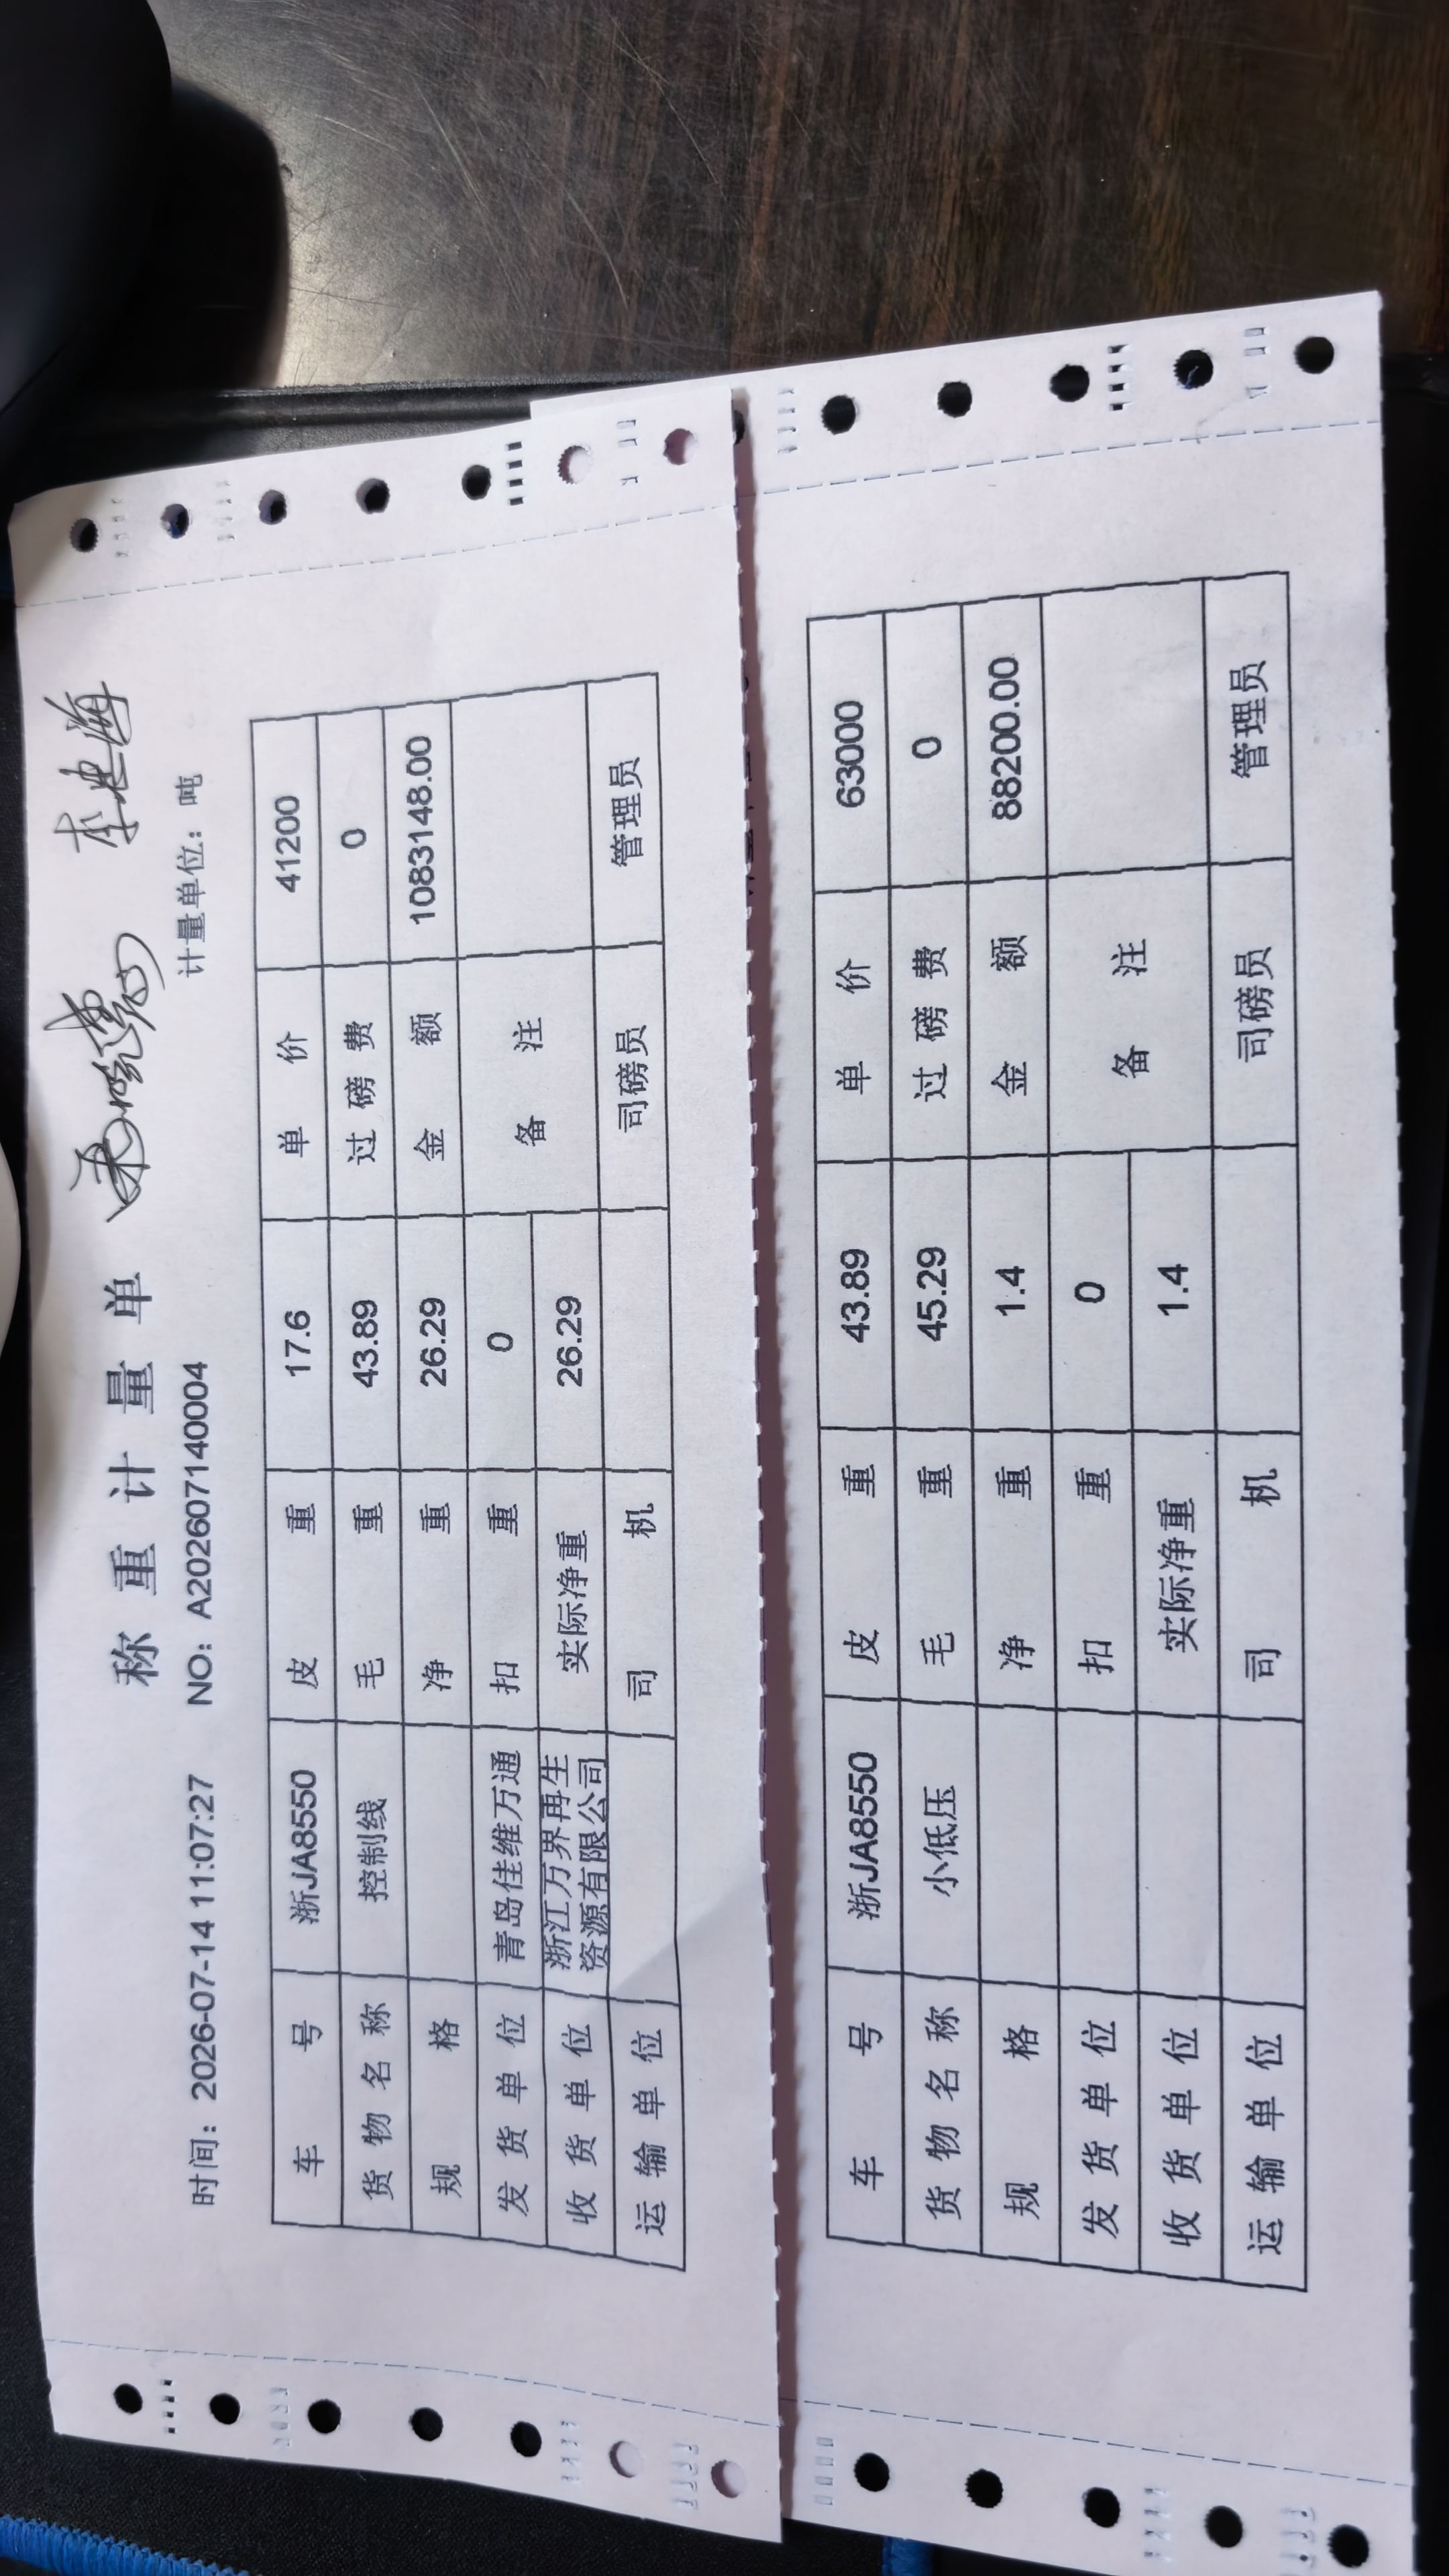 称重计量单
时间: 2026-07-14 11:07:27 NO: A202607140004 计量单位: 吨
车号 浙JA8550 皮重 17.6 单价 41200
货物名称 控制线 毛重 43.89 过磅费 0
规格 净重 26.29 金额 1083148.00
发货单位 青岛佳维万通 扣重 0 备注
收货单位 浙江万界再生资源有限公司 实际净重 26.29
运输单位 司机 司磅员 管理员
车号 浙JA8550 皮重 43.89 单价 63000
货物名称 小低压 毛重 45.29 过磅费 0
规格 净重 1.4 金额 88200.00
发货单位 扣重 0 备注
收货单位 实际净重 1.4
运输单位 司机 司磅员 管理员